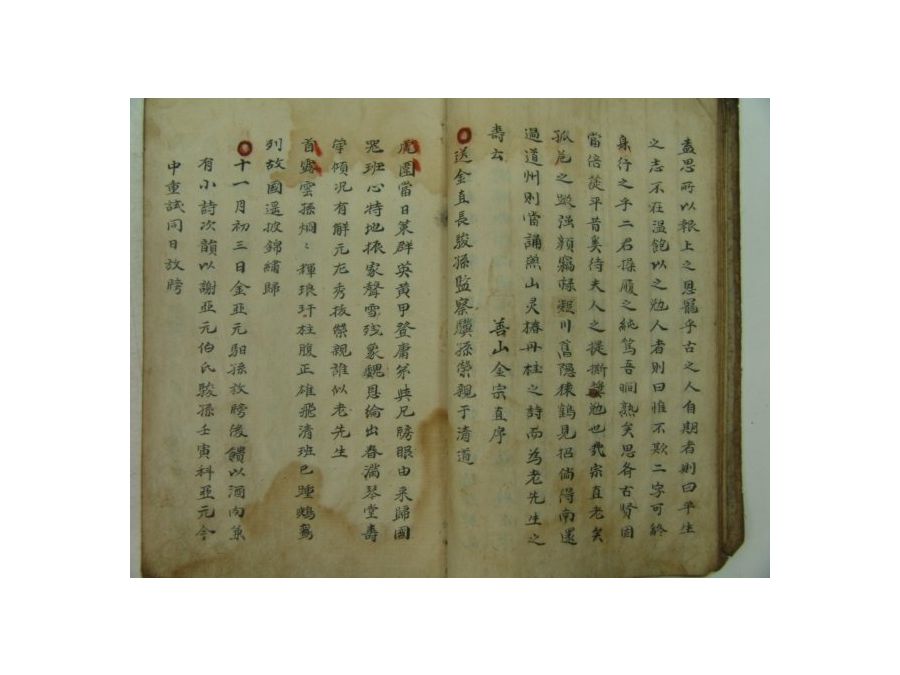 盍思所以報上之恩寵乎古之人自期者則曰平生
之志不在溫飽以之勉人者則曰惟不欺二字可終
身行之乎二君操履之純篤吾嗣熟矣思齊古賢固
當倍蓰平昔奚待夫人之提撕奬勉也哉宗直老矣
孤危之蹤强顔竊祿嶺川舊隱猿鶴見招倘得南還
過道州則當誦燕山灵椿丹桂之詩而為老先生之
壽云
善山金宗直序
送金直長駿孫監察驥孫榮親于清道
虎圍當日策群英黃甲登庸弟與兄膀眼由来歸國
器班心特地振家聲雪残象魏恩綸出春滿琴堂壽
斝傾况有解元尤秀拔榮親誰似老先生
首露雲孫炯〻輝琅玕柱腹正雄飛清班已踵鵷鸞
列故國遥披錦繡歸
十一月初三日金亞元馹孫放榜後饋以酒向兼
有小詩次韻以謝亞元伯氏駿孫壬寅科亞元今
中重試同日放榜